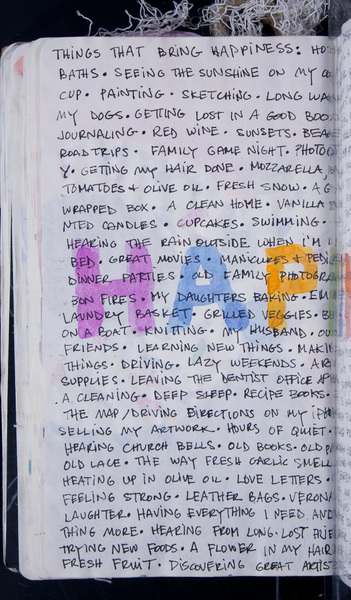 THINGS THAT BRING HAPPINESS: HO
BATHS • SEEING THE SUNSHINE ON MY
CUP • PAINTING • SKETCHING • LONG WA
MY DOGS • GETTING LOST IN A GOOD BOO
JOURNALING • RED WINE • SUNSETS • BEA
ROAD TRIPS • FAMILY GAME NIGHT • PHOTOG
Y • GETTING MY HAIR DONE • MOZZARELLA,
TOMATOES & OLIVE OIL • FRESH SNOW • A
WRAPPED BOX • A CLEAN HOME • VANILLA
NTED CANDLES • CUPCAKES • SWIMMING •
HEARING THE RAIN OUTSIDE WHEN I'M
BED • GREAT MOVIES • MANICURES & PEDI
DINNER PARTIES • OLD FAMILY PHOTOGRA
BON FIRES • MY DAUGHTERS BAKING •
LAUNDRY BASKET • GRILLED VEGGIES •
ON A BOAT • KNITTING • MY HUSBAND •
FRIENDS • LEARNING NEW THINGS • MAKIN
THINGS • DRIVING • LAZY WEEKENDS • AR
SUPPLIES • LEAVING THE DENTIST OFFICE
A CLEANING • DEEP SLEEP • RECIPE BOOKS •
THE MAP/DRIVING DIRECTIONS ON MY
SELLING MY ARTWORK • HOURS OF QUIET •
HEARING CHURCH BELLS • OLD BOOKS • OLD
OLD LACE • THE WAY FRESH GARLIC SMELL
HEATING UP IN OLIVE OIL • LOVE LETTERS •
FEELING STRONG • LEATHER BAGS • VERONA
LAUGHTER • HAVING EVERYTHING I NEED AND
THING MORE • HEARING FROM LONG-LOST FRIE
TRYING NEW FOODS • A FLOWER IN MY HAIR
FRESH FRUIT • DISCOVERING GREAT ARTIST
HAP